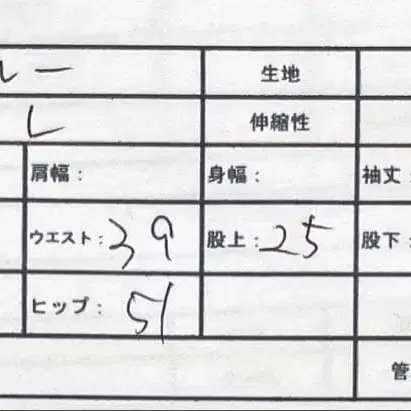 ルー 生地
L 伸縮性
肩幅: 身幅: 袖丈:
ウエスト: 39 股上: 25 股下:
ヒップ: 51
管